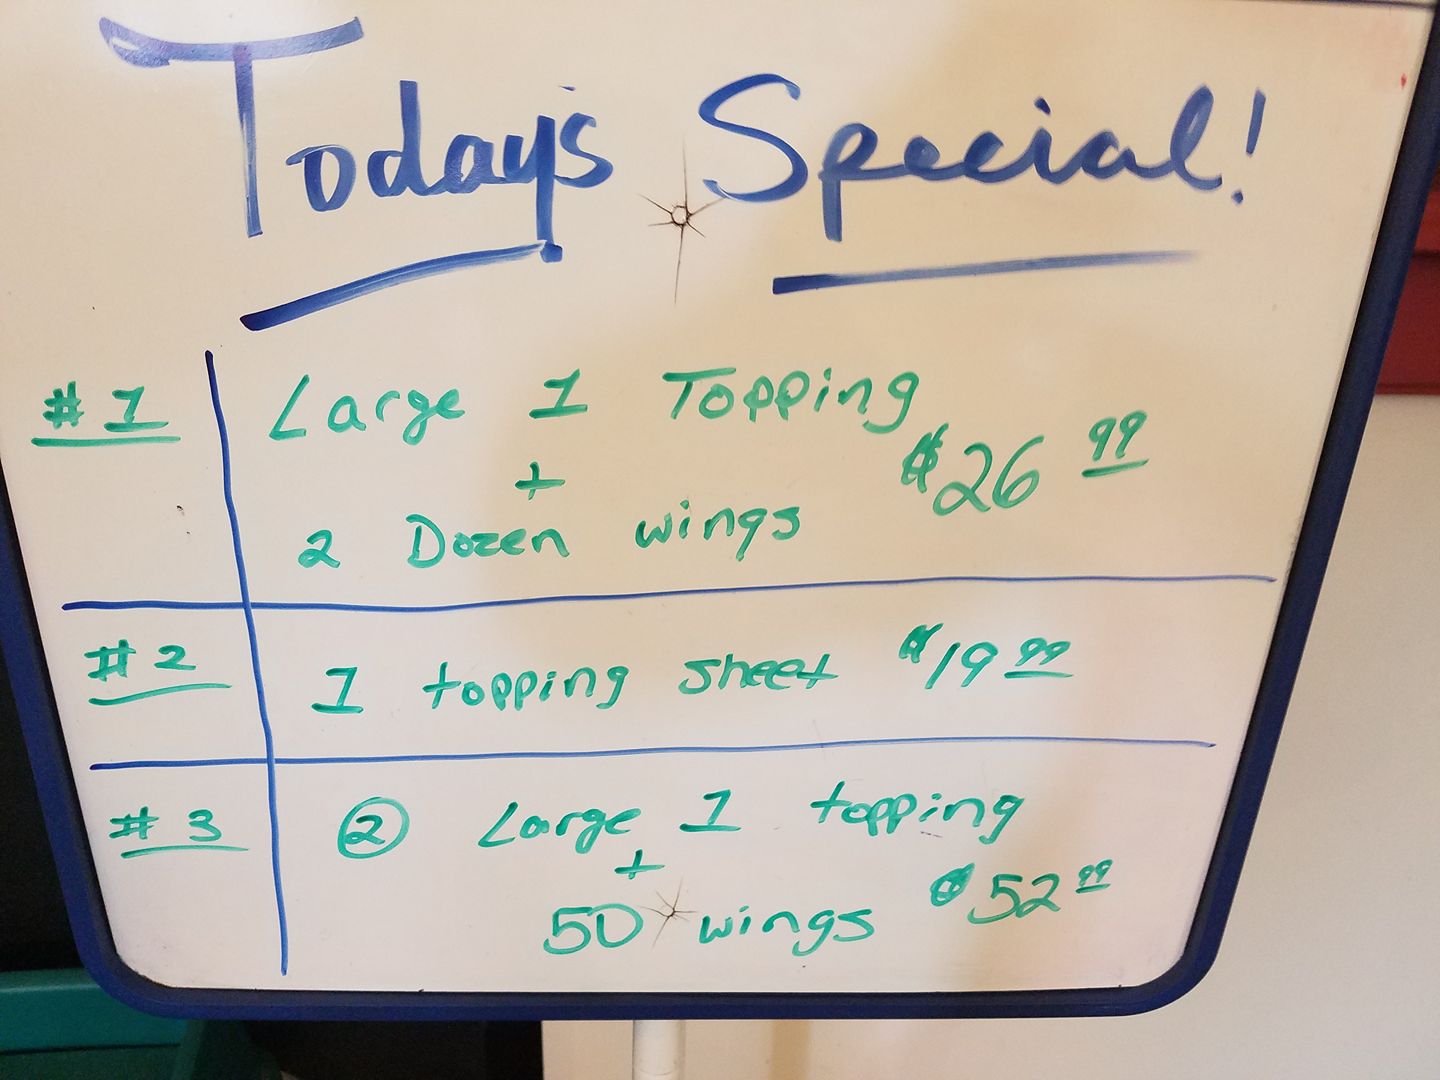 Today's Special!
#1 Large 1 Topping
+
2 Dozen wings $26 99
#2 1 topping sheet $19 99
#3 2 Large 1 topping
+
50 wings $52 99